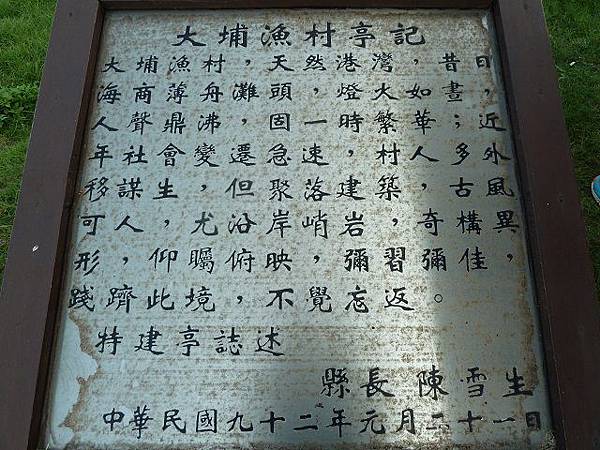 大埔漁村亭記
大埔漁村，天然港灣，昔日
海商薄舟灘頭，燈火如晝，
人聲鼎沸，固一時繁華；近
年社會變遷急速，村人多外
移謀生，但聚落建築，古風
可人，尤沿岸峭岩，奇構異
形，仰矚俯映，彌習彌佳，
踐躋此境，不覺忘返。
特建亭誌述
縣長陳雪生
中華民國九十二年元月二十一日